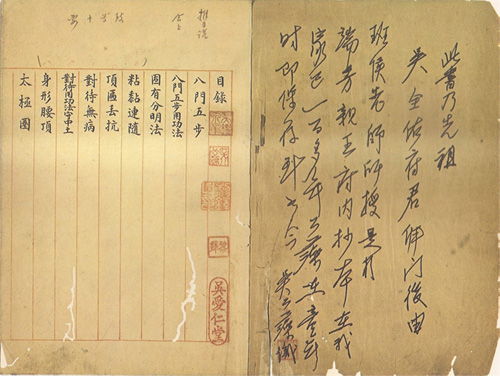 此書乃先祖
吳全佑府君拜門後由
班侯老師所授是於
端芳親王府內抄本在我
家已一百多年公藻在童年
時即保存到如今 吳公藻識
目錄
八門五步
八門五步用功法
固有分明法
粘黏連隨
頂匾丟抗
對待無病
對待用功法守中土
身形腰頂
太極圈
吳愛仁堂